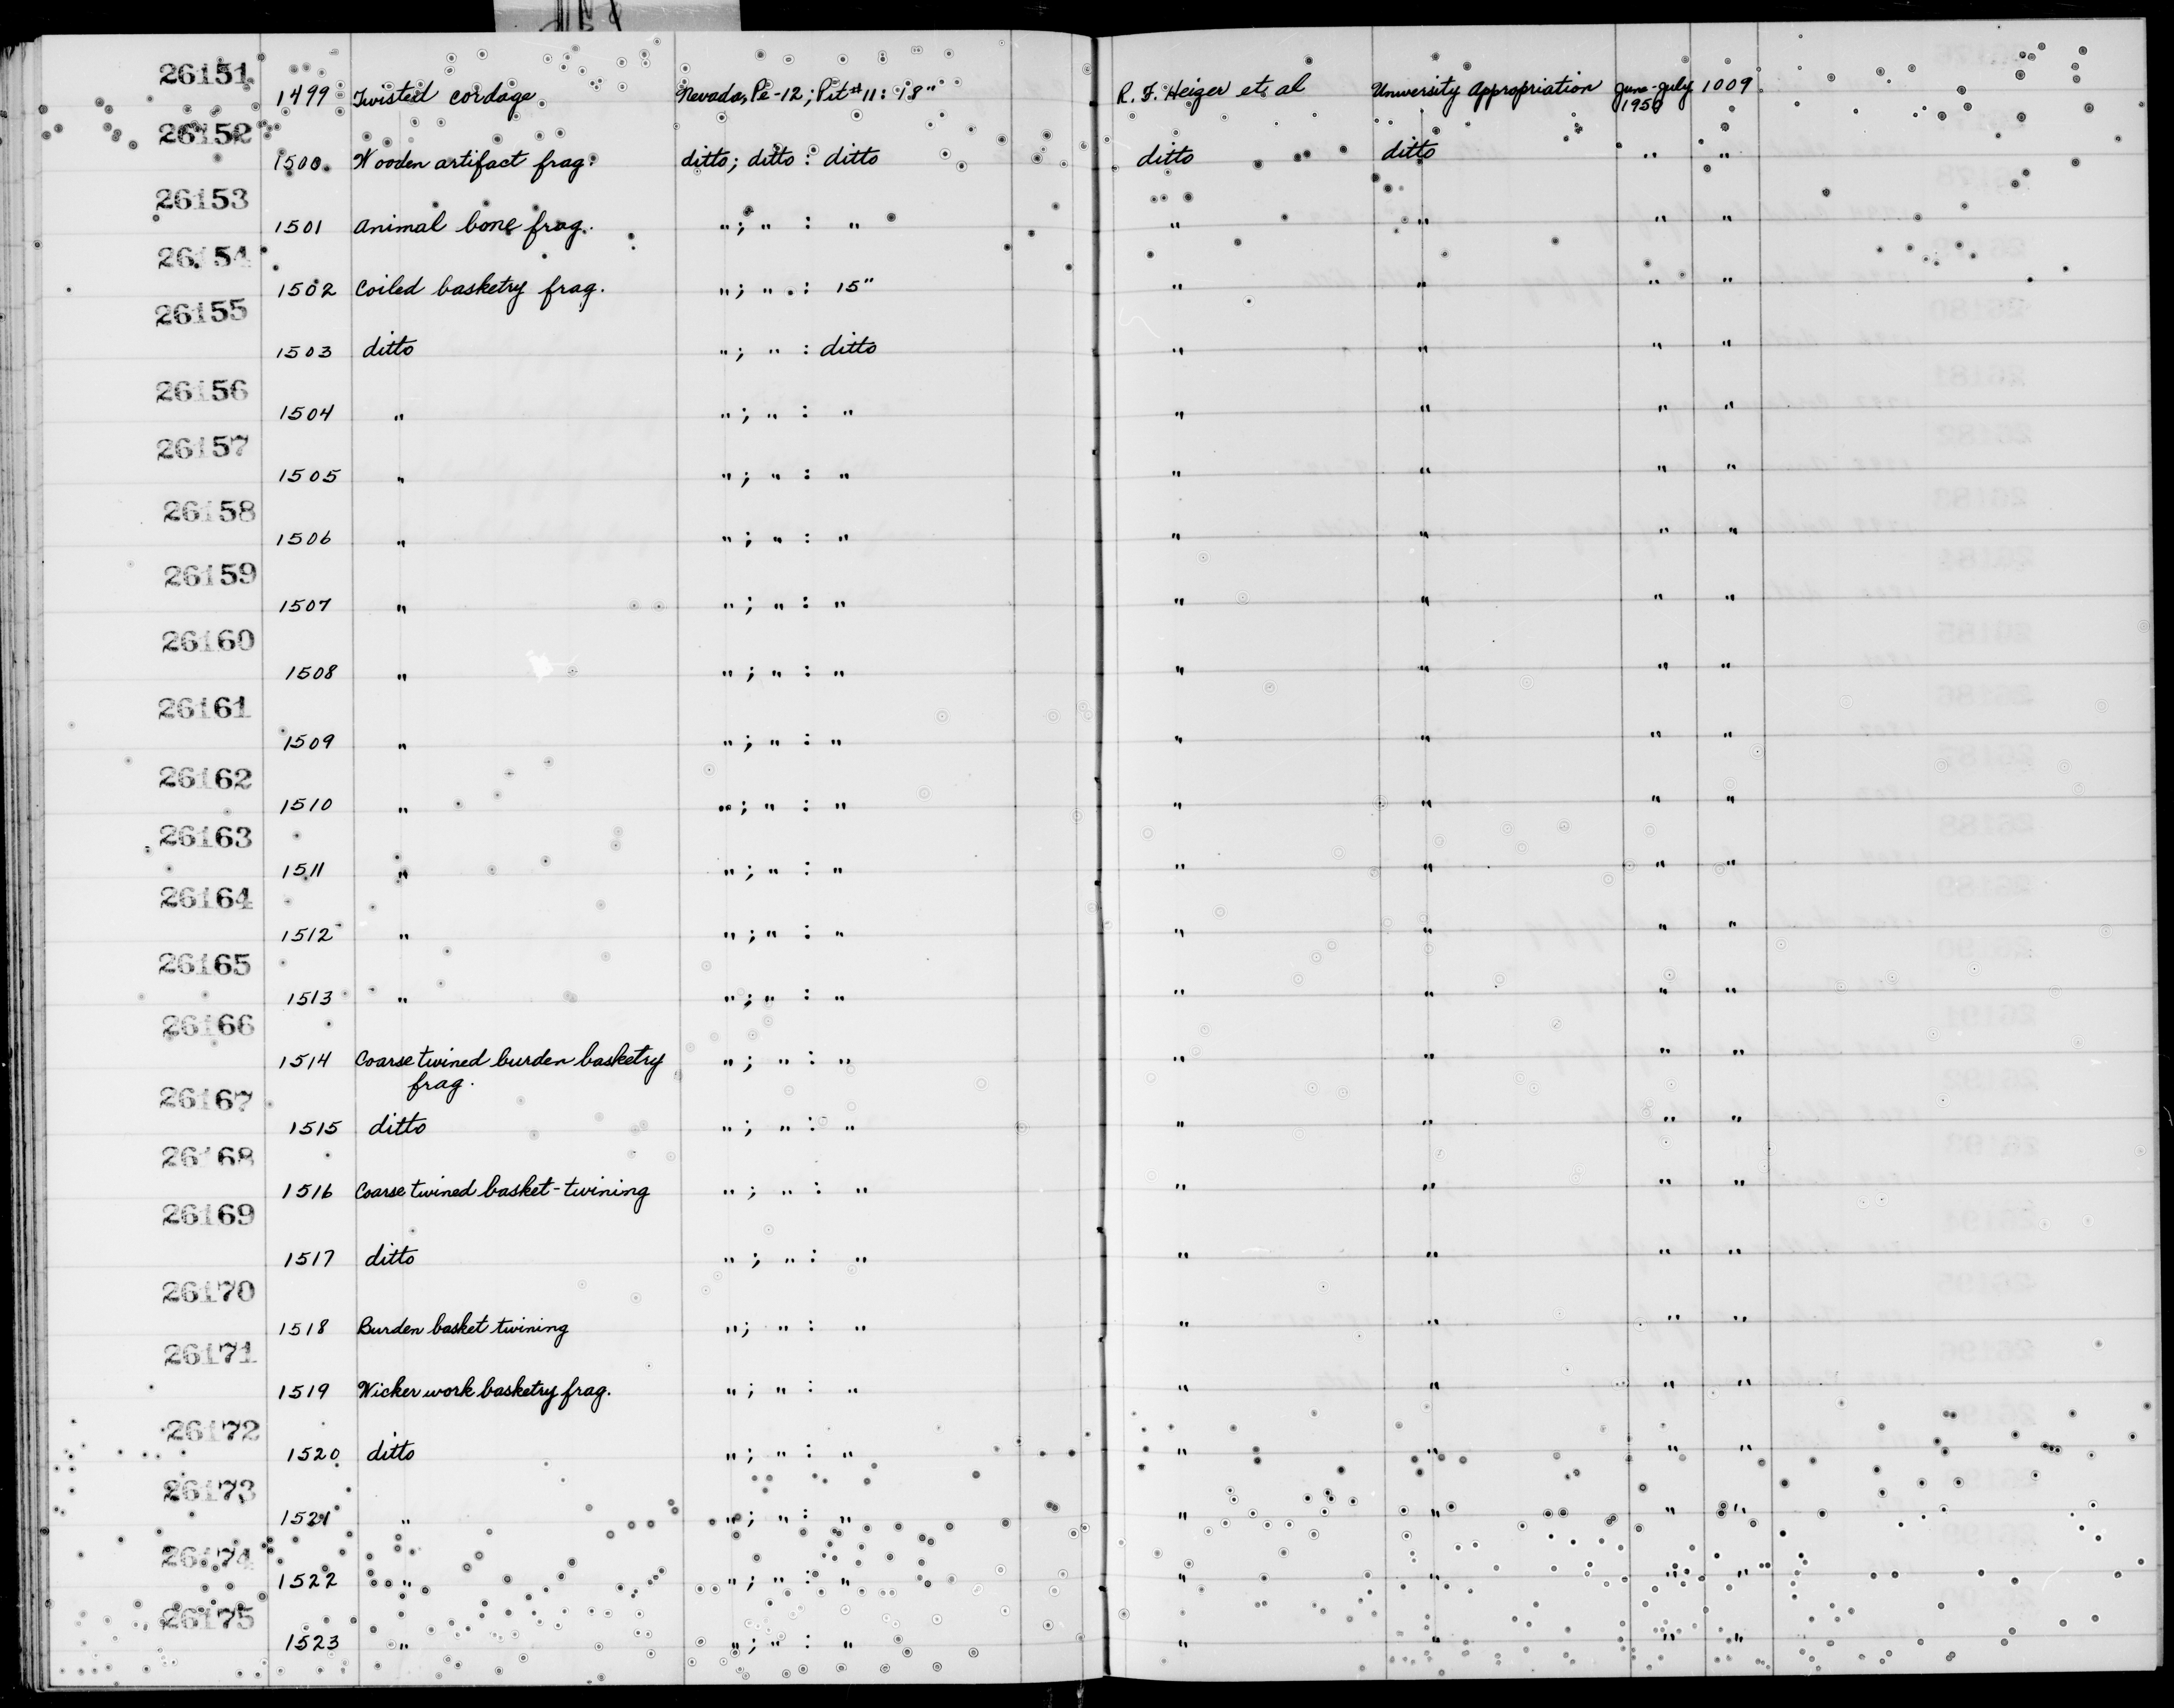 26151 1499 Twisted cordage Nevada, Pe-12; Pit #11: 18" R. F. Heizer et al University Appropriation June-July 1950 1009
26152 1500 Wooden artifact frag. ditto; ditto : ditto ditto ditto " "
26153 1501 Animal bone frag. " ; " : " " " " "
26154 1502 Coiled basketry frag. " ; " : 15" " " " "
26155 1503 ditto " ; " : ditto " " " "
26156 1504 " " ; " : " " " " "
26157 1505 " " ; " : " " " " "
26158 1506 " " ; " : " " " " "
26159 1507 " " ; " : " " " " "
26160 1508 " " ; " : " " " " "
26161 1509 " " ; " : " " " " "
26162 1510 " " ; " : " " " " "
26163 1511 " " ; " : " " " " "
26164 1512 " " ; " : " " " " "
26165 1513 " " ; " : " " " " "
26166 1514 Coarse twined burden basketry " ; " : " " " " "
frag.
26167 1515 ditto " ; " : " " " " "
26168 1516 Coarse twined basket-twining " ; " : " " " " "
26169 1517 ditto " ; " : " " " " "
26170 1518 Burden basket twining " ; " : " " " " "
26171 1519 Wicker work basketry frag. " ; " : " " " " "
26172 1520 ditto " ; " : " " " " "
26173 1521 " " ; " : " " " " "
26174 1522 " " ; " : " " " " "
26175 1523 " " ; " : " " " " "